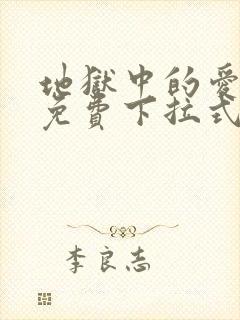 地獄中的愛
免費下拉式
李良志